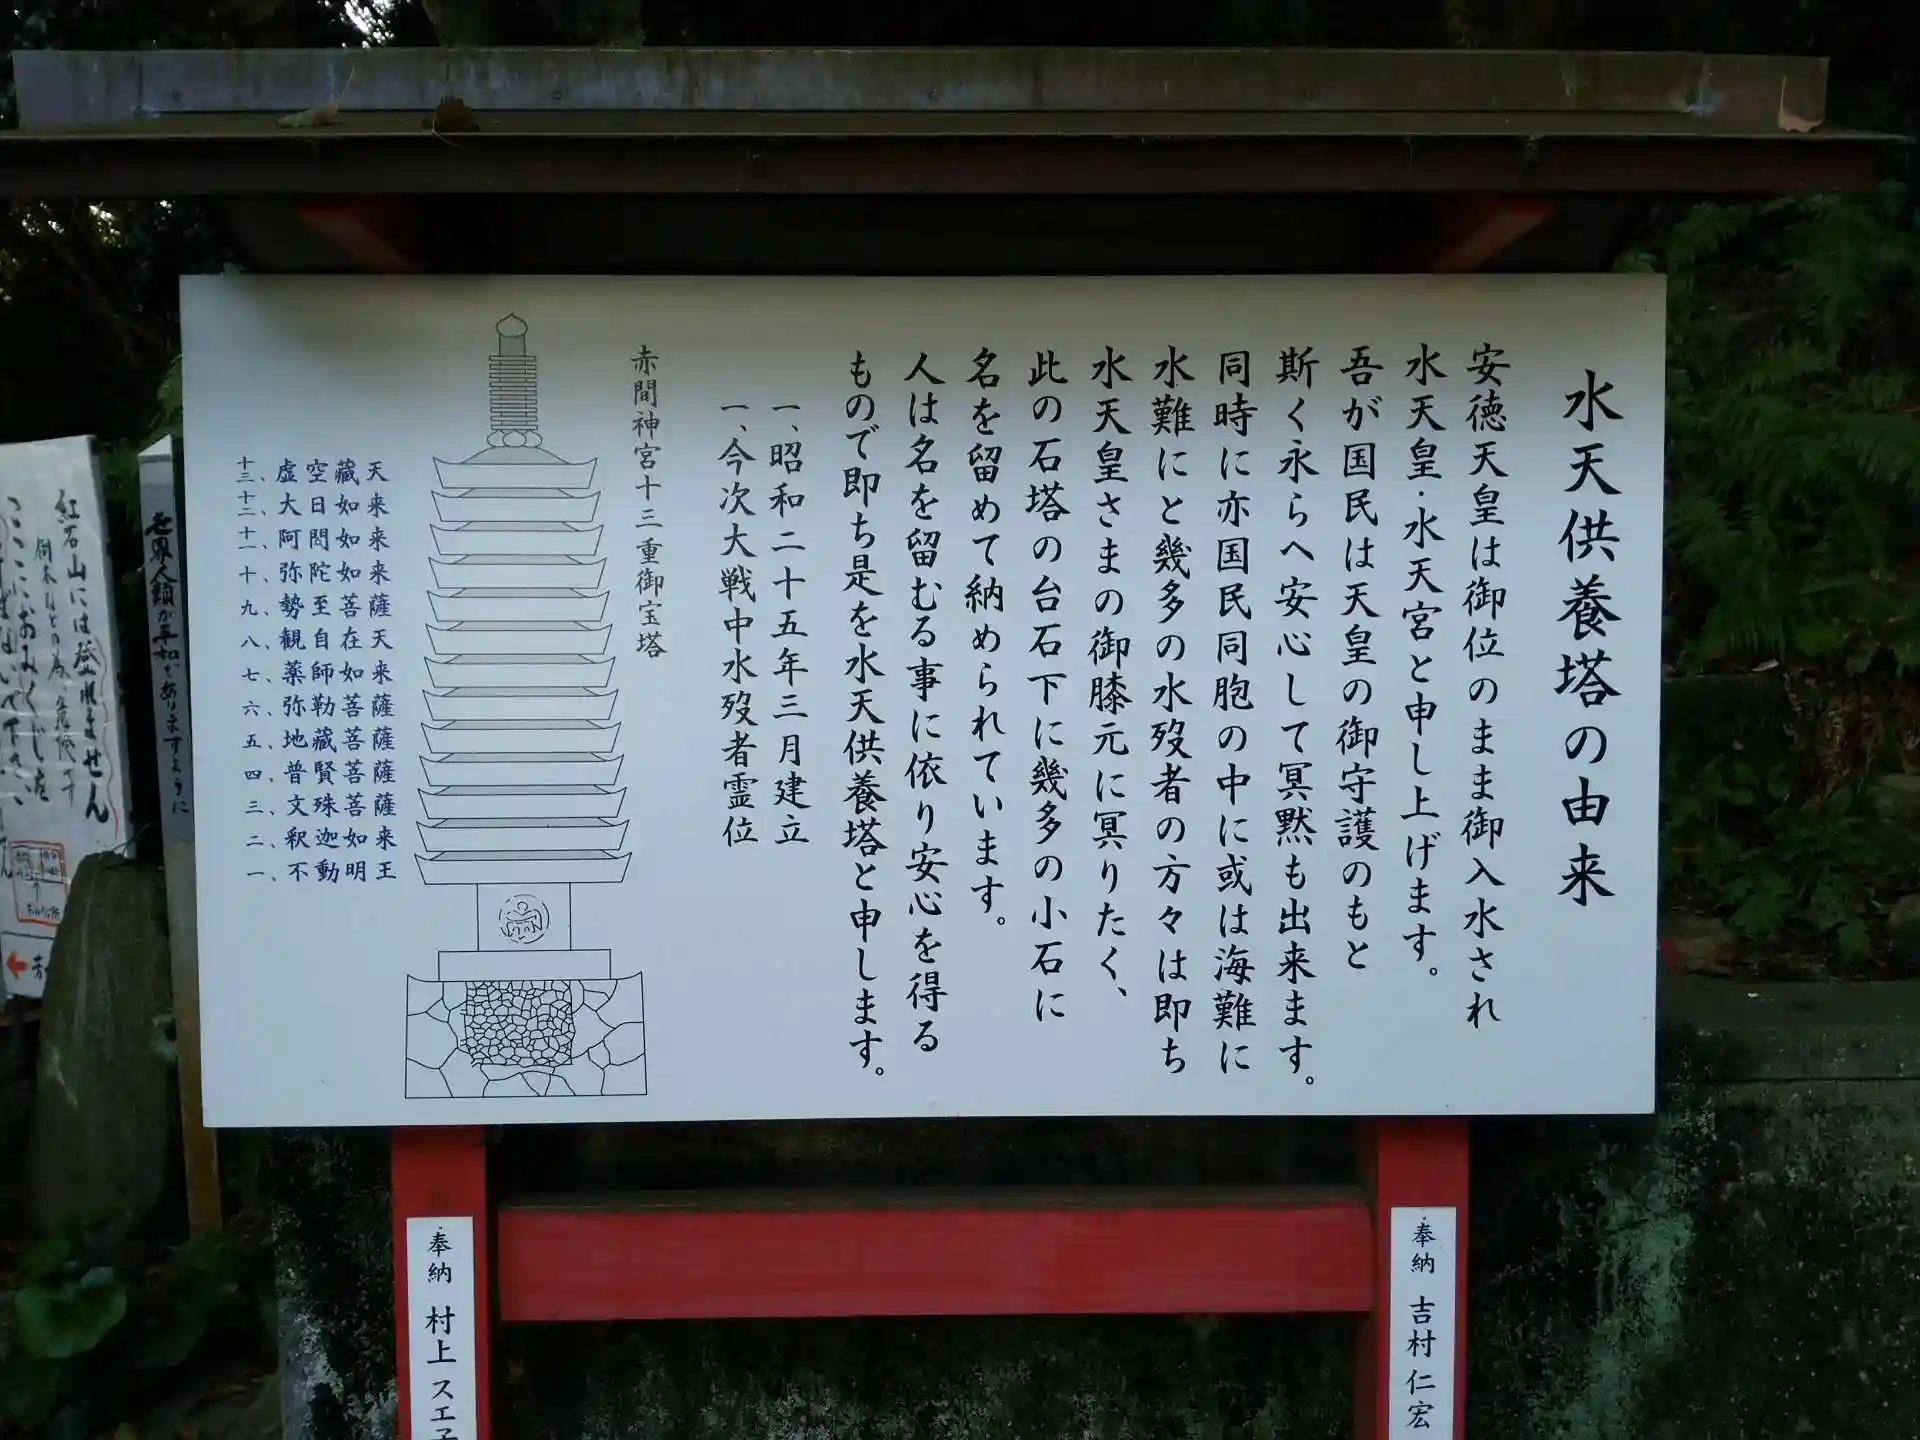 水天供養塔の由来
安徳天皇は御位のまま御入水され
水天皇・水天宮と申し上げます。
吾が国民は天皇の御守護のもと
斯く永らへ安心して冥黙も出来ます。
同時に亦国民同胞の中に或は海難に
水難にと幾多の水歿者の方々は即ち
水天皇さまの御膝元に冥りたく、
此の石塔の台石下に幾多の小石に
名を留めて納められています。
人は名を留むる事に依り安心を得る
もので即ち是を水天供養塔と申します。
一、昭和二十五年三月建立
一、今次大戦中水歿者霊位
赤間神宮十三重御宝塔
十三、虚空藏天
十二、大日如来
十一、阿閦如来
十、弥陀如来
九、勢至菩薩
八、観自在天
七、薬師如来
六、弥勒菩薩
五、地藏菩薩
四、普賢菩薩
三、文殊菩薩
二、釈迦如来
一、不動明王
奉納 吉村仁宏
奉納 村上スエ子
世界人類が平和でありますように
紅石山には登れません
倒木などの為、危険です
ここにおみくじを